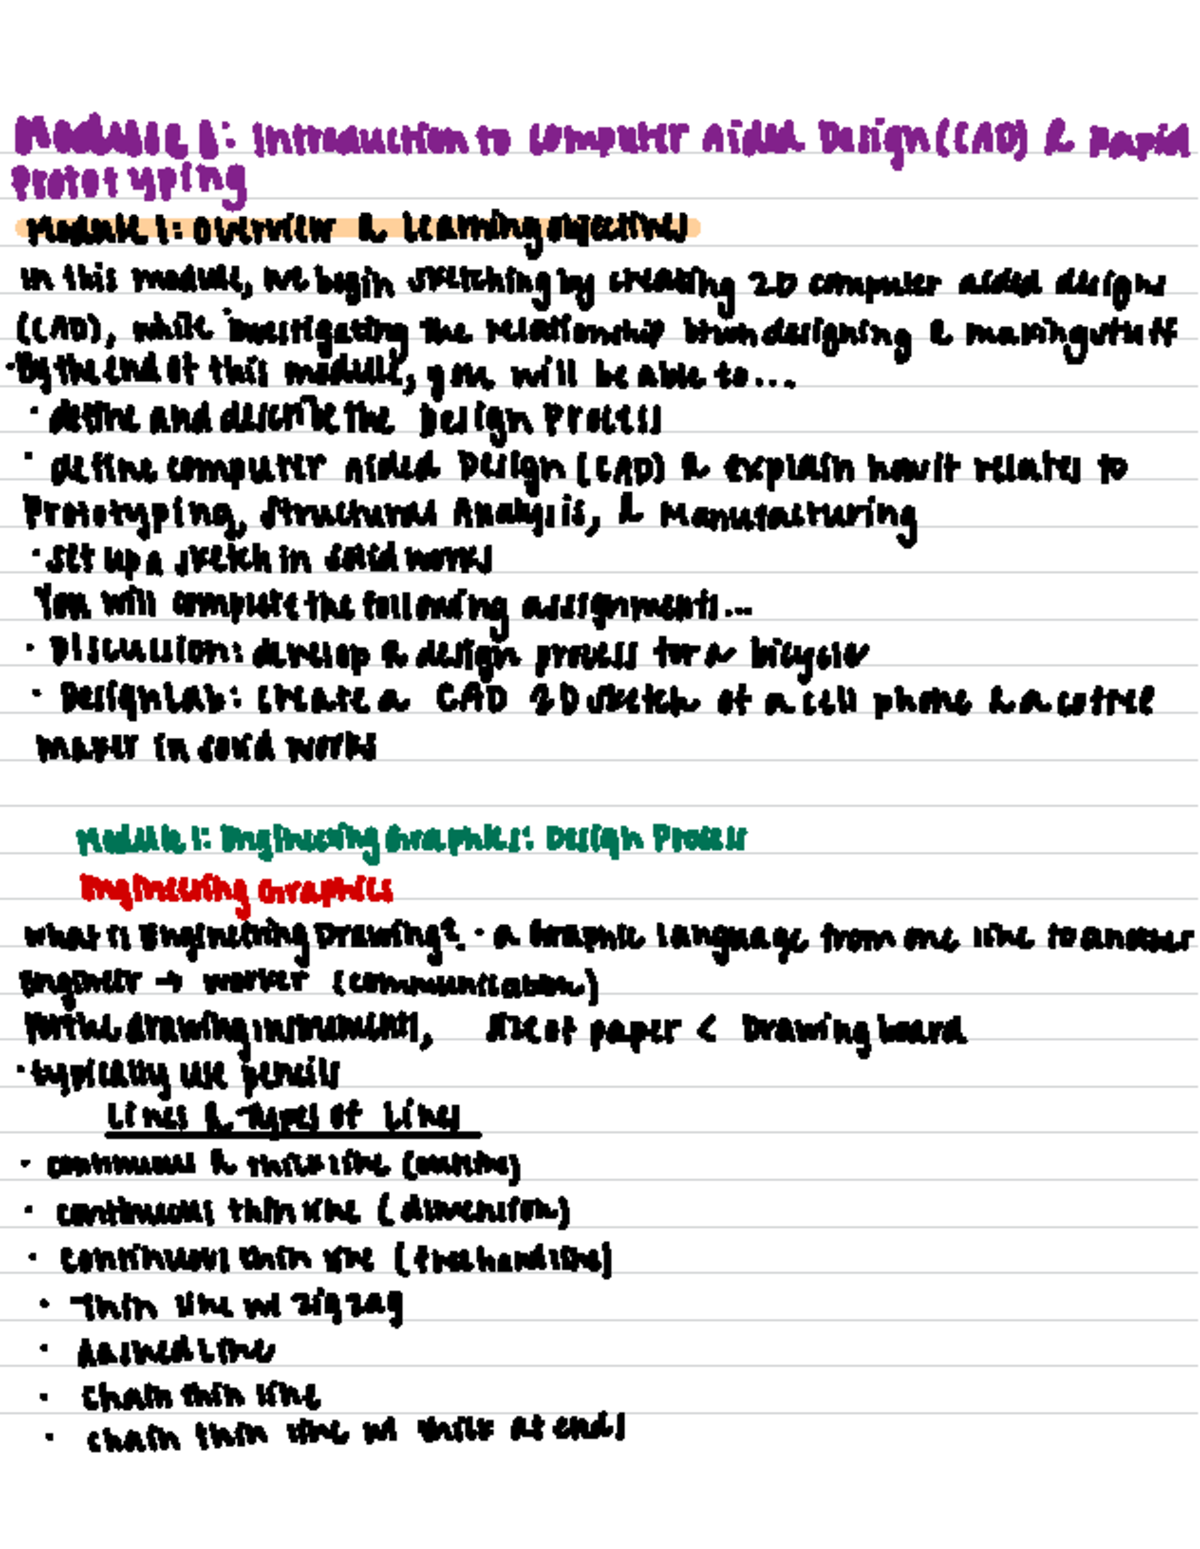 Module 1: Introduction to Computer Aided Design (CAD) & Rapid
Prototyping
Module 1: Overview & Learning objectives
In this module, we begin sketching by creating 2D computer aided designs
(CAD), while investigating the relationship btwn designing & making stuff
· By the end of this module, you will be able to...
· define and describe the Design Process
· define computer Aided Design (CAD) & explain how it relates to
Prototyping, Structural Analysis, & Manufacturing
· set up a sketch in solid works
You will complete the following assignments...
· Discussion: develop a design process for a bicycle
· Design Lab: create a CAD 2D sketch of a cell phone & a coffee
maker in solid works
Module 1: Engineering Graphics: Design Process
Engineering Graphics
what is Engineering Drawing? · a Graphic language from one line to another
Engineer → worker (communication)
drawing instruments, size of paper < Drawing board
· typically use pencils
Lines & Types of Lines
· continuous & thick line (outline)
· continuous thin line (dimension)
· continuous thin line (freehand line)
· Thin line w/ zigzag
· dashed line
· chain thin line
· chain thin line w/ thick at ends